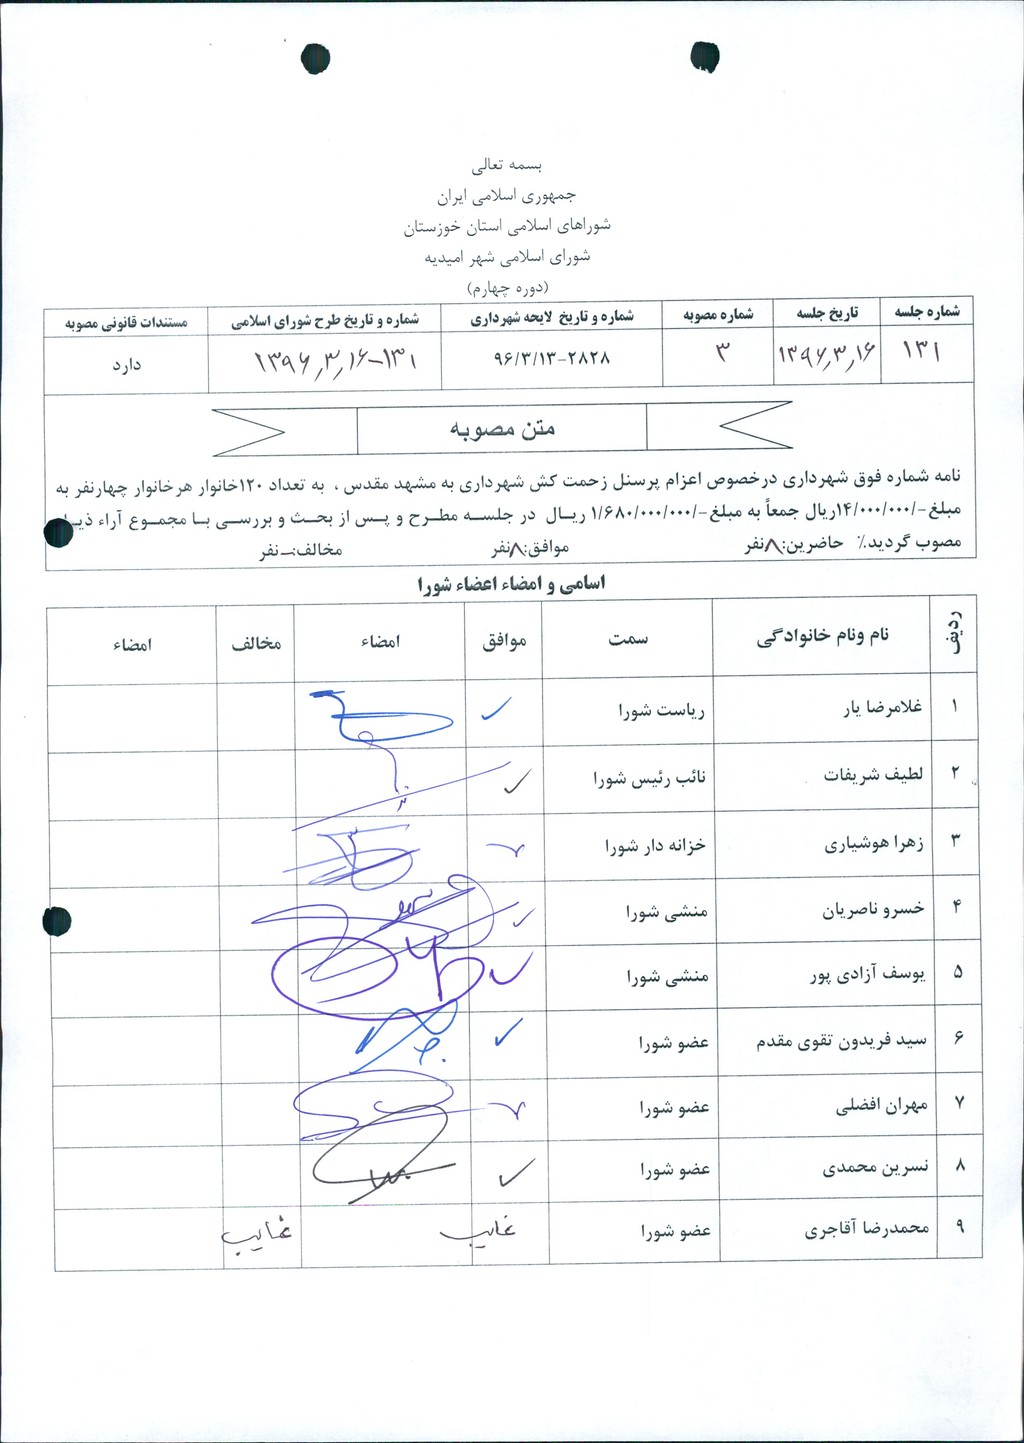 بسمه تعالی
جمهوری اسلامی ایران
شوراهای اسلامی استان خوزستان
شورای اسلامی شهر امیدیه
(دوره چهارم)
شماره جلسه تاریخ جلسه شماره مصوبه شماره و تاریخ لایحه شهرداری شماره و تاریخ طرح شورای اسلامی مستندات قانونی مصوبه
۱۳۱ ۱۳۹۶٫۳٫۱۶ ۳ ۹۶/۳/۱۳-۲۸۲۸ ۱۳۱-۱۳۹۶٫۳٫۱۶ دارد
متن مصوبه
نامه شماره فوق شهرداری درخصوص اعزام پرسنل زحمت کش شهرداری به مشهد مقدس ، به تعداد ۱۲۰خانوار هرخانوار چهارنفر به
مبلغ-/۱۴/۰۰۰/۰۰۰ریال جمعاً به مبلغ-/۱/۶۸۰/۰۰۰/۰۰۰ ریال در جلسه مطرح و پس از بحث و بررسی با مجموع آراء
مصوب گردید.٪ حاضرین:۸نفر موافق:۸نفر مخالف:-نفر
اسامی و امضاء اعضاء شورا
ردیف نام ونام خانوادگی سمت موافق امضاء مخالف امضاء
۱ غلامرضا یار ریاست شورا ✓
۲ لطیف شریفات نائب رئیس شورا ✓
۳ زهرا هوشیاری خزانه دار شورا ✓
۴ خسرو ناصریان منشی شورا ✓
۵ یوسف آزادی پور منشی شورا ✓
۶ سید فریدون تقوی مقدم عضو شورا ✓
۷ مهران افضلی عضو شورا ✓
۸ نسرین محمدی عضو شورا ✓
۹ محمدرضا آقاجری عضو شورا غایب غایب